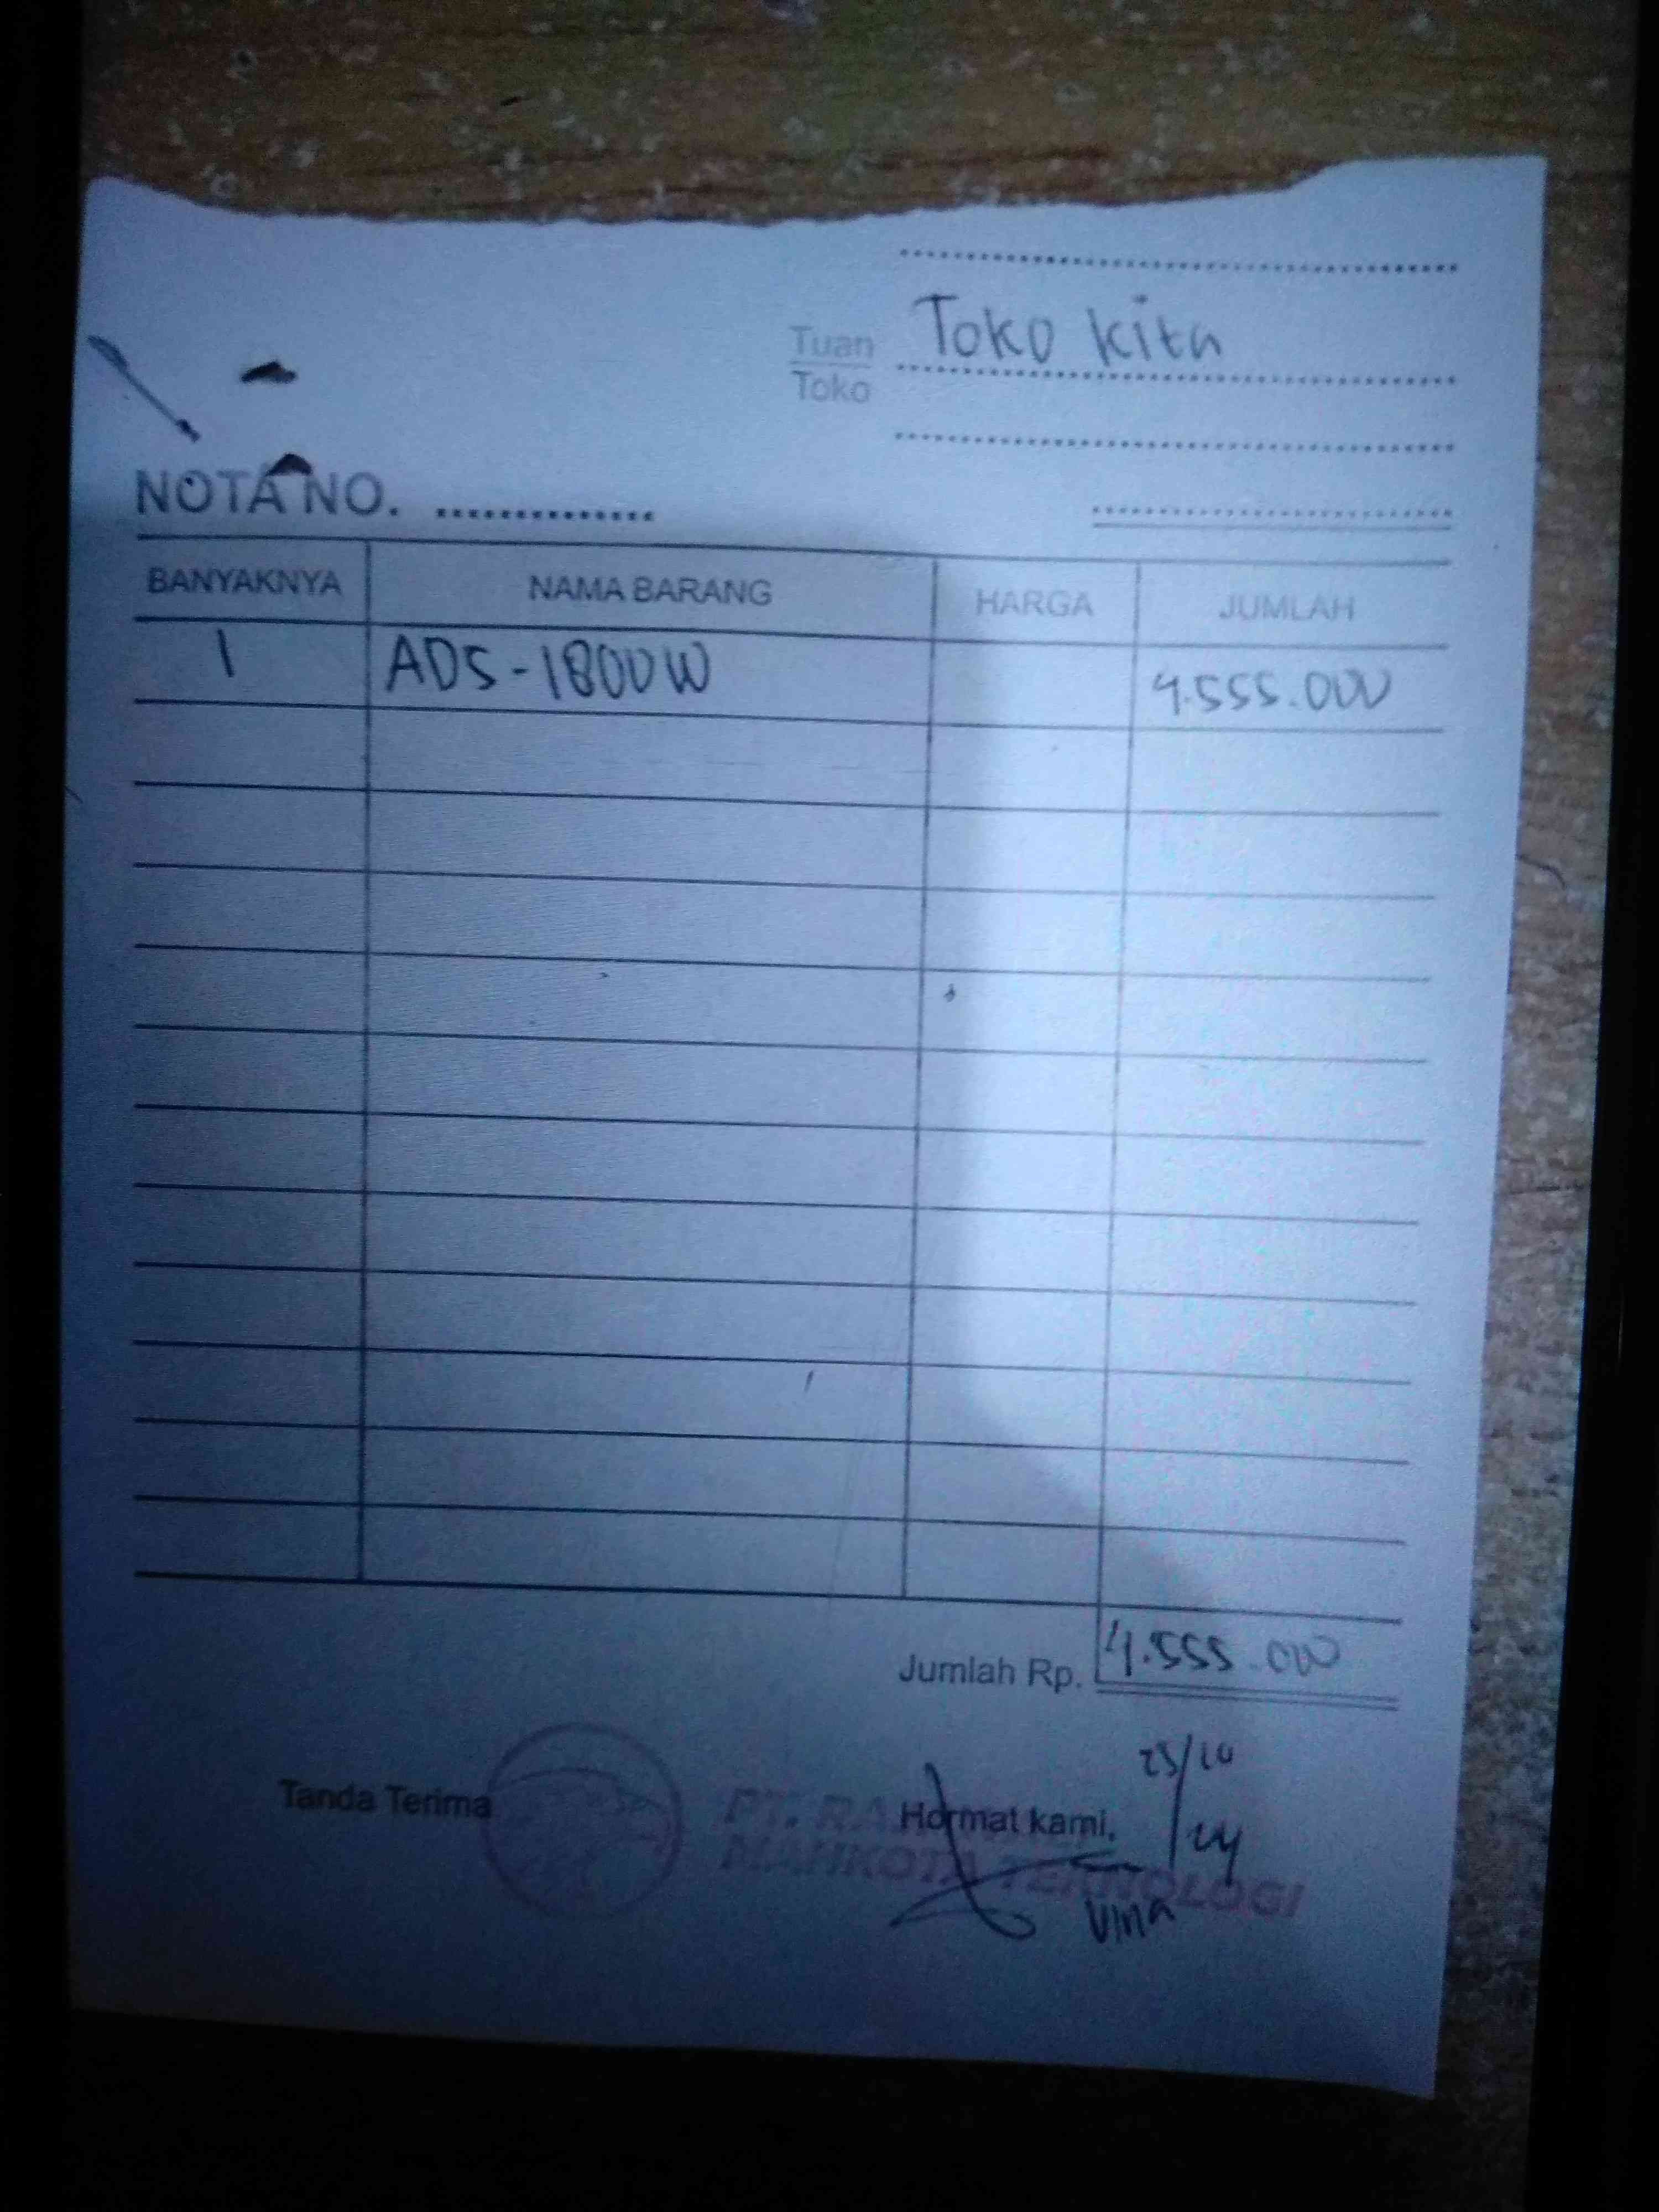 Toko kita
Tuan
Toko
NOTA NO. ...............
BANYAKNYA NAMA BARANG HARGA JUMLAH
1 ADS-1800W 4.555.000
Jumlah Rp. 4.555.000
Tanda Terima Hormat kami,
PT. RA
MAHKOTA TEKNOLOGI
Vina